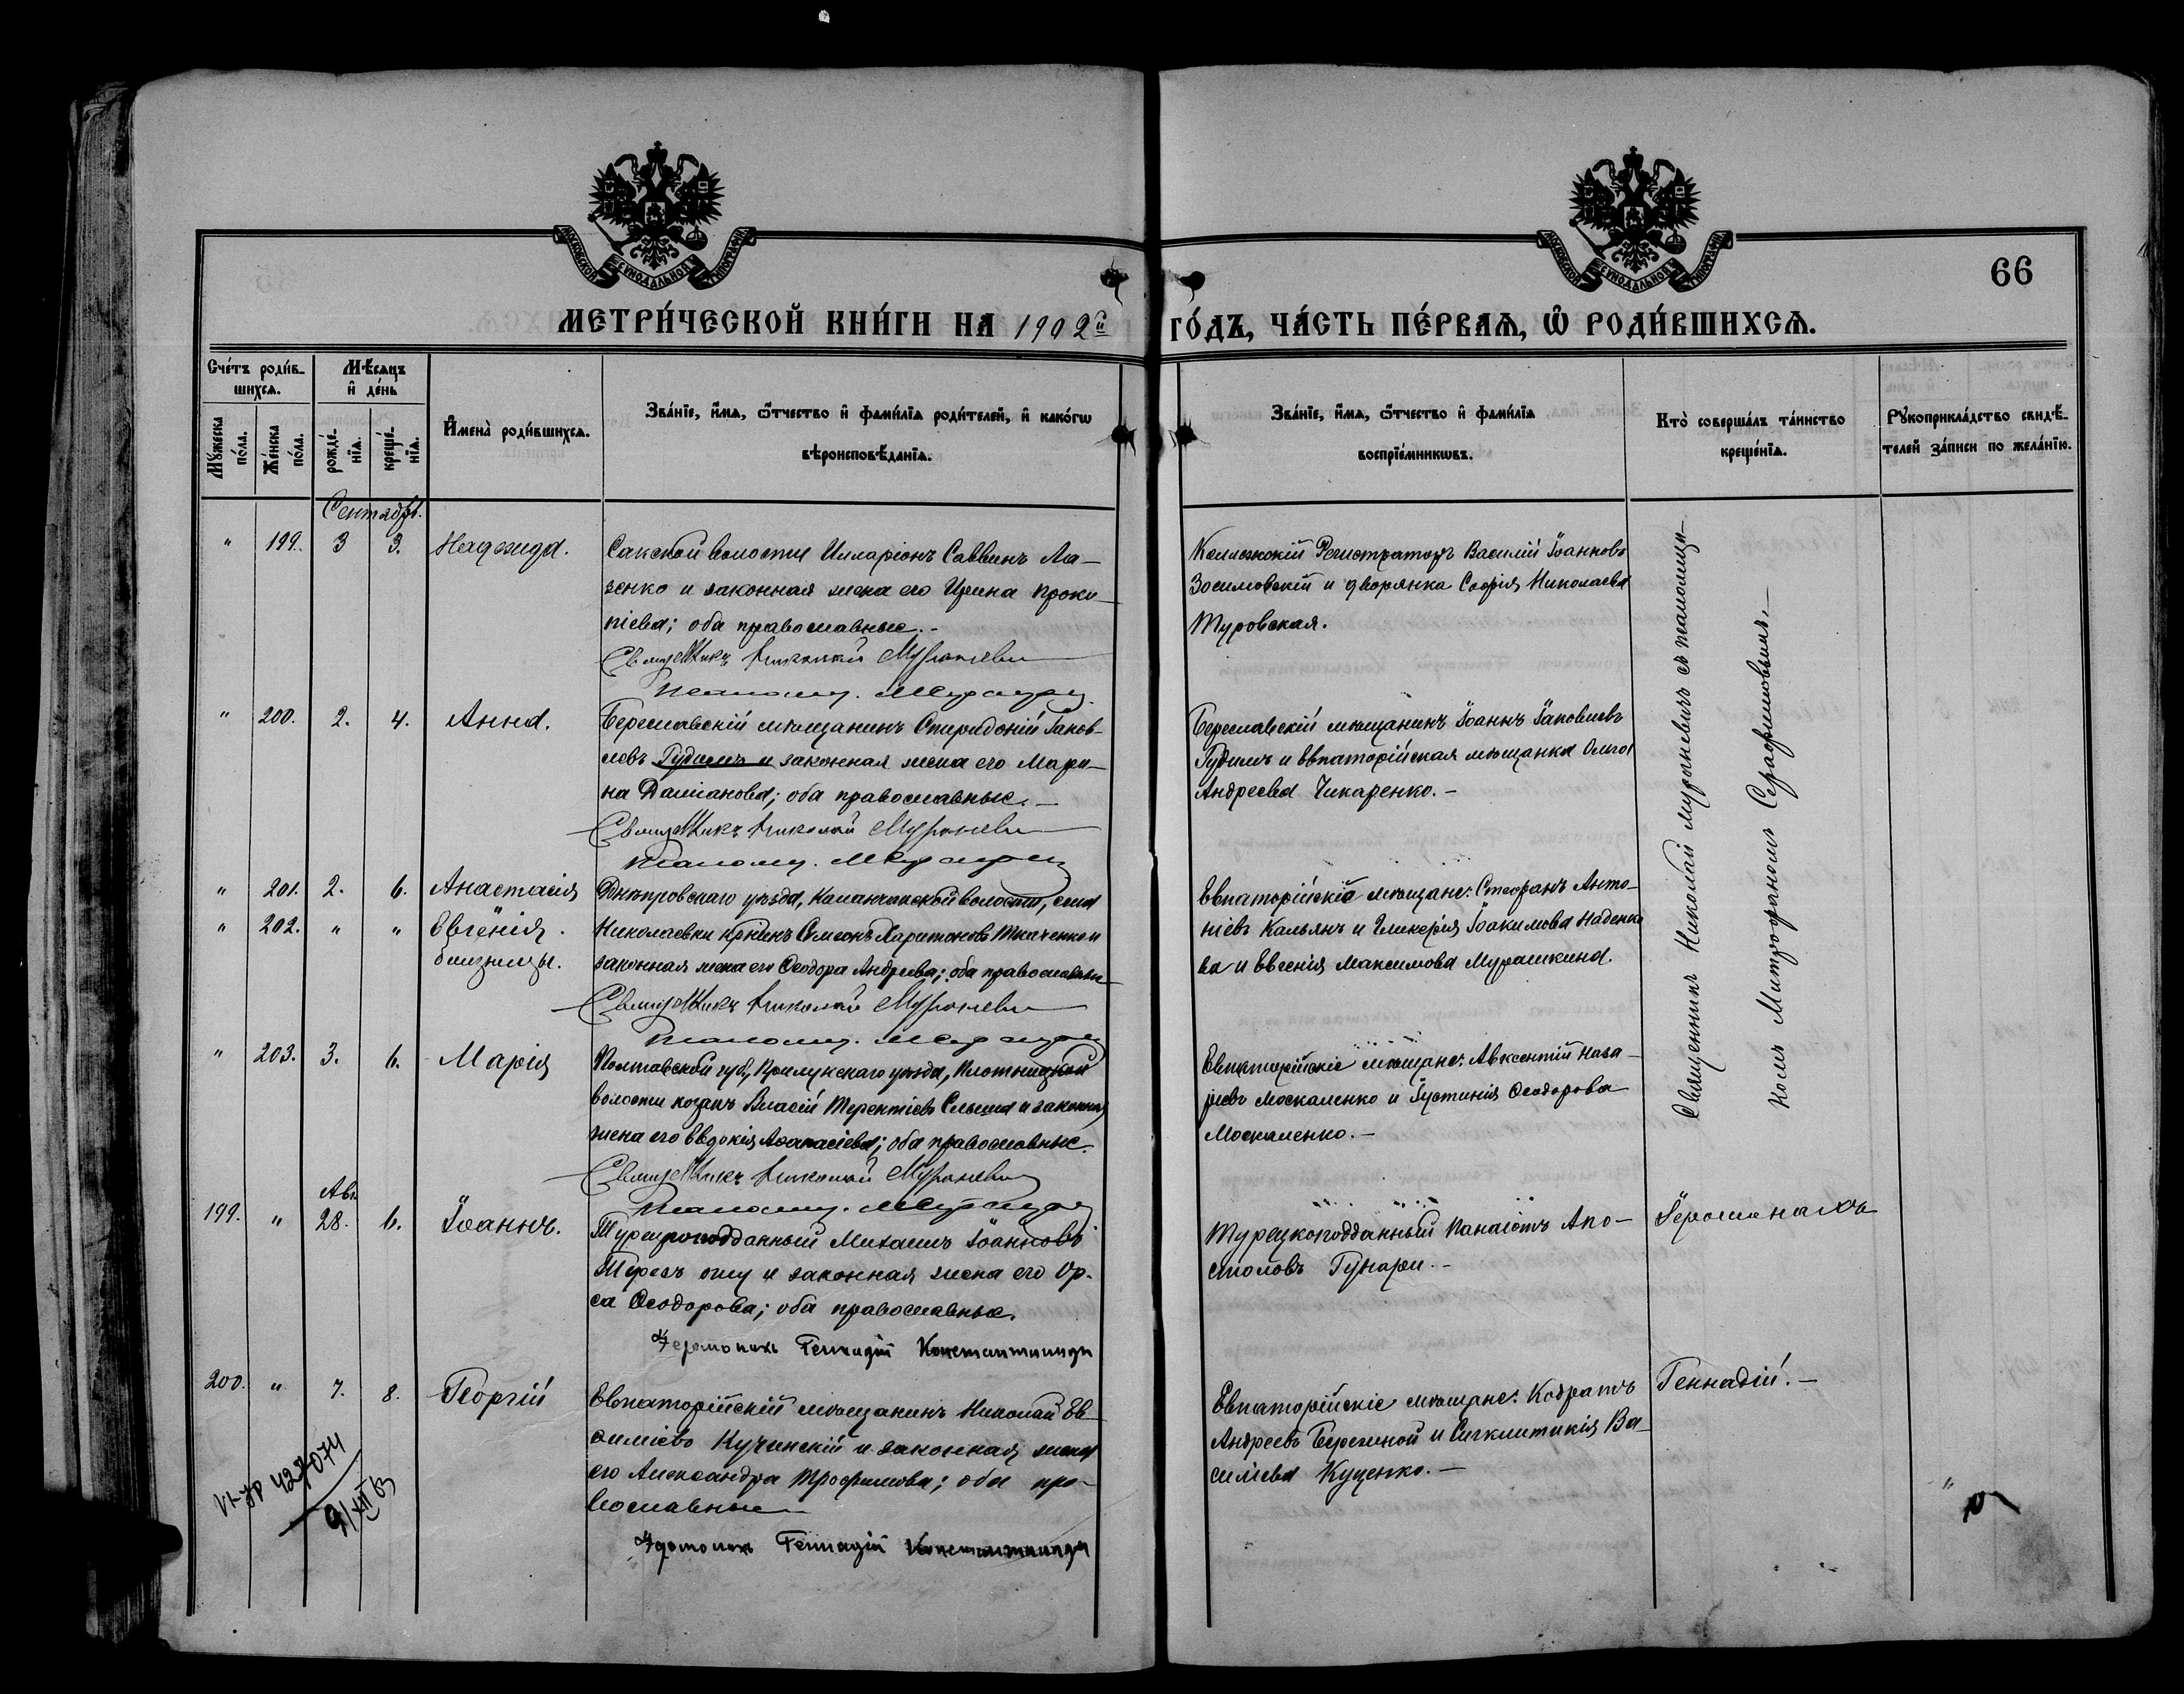 МОСКОВСКОЙ СѴНОДАЛЬНОЙ ТИПОГРАФІИ
МОСКОВСКОЙ СѴНОДАЛЬНОЙ ТИПОГРАФІИ
66
МЕТРИ́ЧЕСКОЙ КНИ́ГИ НА 1902й ГО́ДЪ, ЧА́СТЬ ПЕ́РВАѦ, Ѽ РОДИ́ВШИХСѦ.
Сче́тъ роди́в-
шихсѧ.
Мꙋ́жеска по́ла.
Же́нска по́ла.
Мѣ́сѧцъ
и҆ де́нь
рожде́-нїѧ.
креще́-нїѧ.
И҆мена̀ роди́вшихсѧ.
Зва́нїе, и҆́мѧ, ѻ҆́тчество и҆ фами́лїѧ роди́телей, и҆ како́гѡ
вѣроисповѣ́данїѧ.
Зва́нїе, и҆́мѧ, ѻ҆́тчество и҆ фами́лїѧ
воспрїе́мникѡвъ.
Кто̀ соверша́лъ та́инство
креще́нїѧ.
Рꙋкоприкла́дство свидѣ́-
телей за́писи по жела́нїю.
Сентябрь.
" 199. 3 3. Надежда.
Сакской волости Илларіонъ Саввинъ Ла-
зенко и законная жена его Ирина Проко-
піева; оба православные.-
Священникъ Николай Мураневичъ
Псаломщ.
Коллежскій Регистраторъ Василій Іоанновъ
Зосимовскій и дворянка Софія Николаева
Туровская.
Священникъ Николай Мураневичъ съ псаломщи-
комъ Митрофаномъ Серафимовымъ.-
" 200. 2. 4. Анна.
Береславскій мѣщанинъ Спиридоній Іаков-
левъ Гудимъ и законная жена его Мари-
на Даміанова; оба православные.-
Священникъ Николай Мураневичъ
Псаломщ.
Береславскій мѣщанинъ Іоаннъ Іаковлевъ
Гудимъ и Евпаторійская мѣщанка Ольга
Андреева Чикаренко.-
" 201. 2. 6. Анастасія
" 202. " " Евгенія.
близницы.
Днѣпровскаго уѣзда, Каланчакской волости, села
Николаевки кр-нинъ Симеонъ Харитоновъ Ткаченко и
законная жена его Ѳеодора Андреева; оба православные
Священникъ Николай Мураневичъ
Псаломщ.
Евпаторійскіе мѣщане: Стефанъ Анто-
ніевъ Кальянъ и Гликерія Іоакимова Наденко
ва и Евгенія Максимова Мурашкина.
" 203. 3. 6. Марія
Полтавской губ., Прилукскаго уѣзда,
волости козакъ Власій Терентіевъ и законная
жена его Евдокія Аѳанасіева; оба православные.
Священникъ Николай Мураневичъ
Псаломщ.
Евпаторійскіе мѣщане: Авксентій Наза-
ріевъ Москаленко и Іустинія Ѳеодорова
Москаленко.-
Авг.
199. " 28. 6. Іоаннъ.
Турецкоподданный Михаилъ Іоанновъ
и законная жена его Ор.
са Ѳеодорова; оба православные.
Іеромонахъ Геннадій Константиниди
Турецкоподданный Панаіотъ Апо-
столовъ Гунари.-
Іеромонахъ
200. " 7. 8. Георгій
Евпаторійскій мѣщанинъ Николай Ев-
ѳиміевъ Кучинскій и законная жена
его Александра Трофимова; оба пра-
вославные
Іеромонахъ Геннадій Константиниди
Евпаторійскіе мѣщане: Кодратъ
Андреевъ Бережной и Сигклитикія Ва-
силіева Куценко.-
Геннадій.-
VI-ЯР 427074